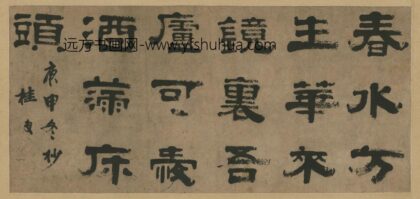 春水方
生華來
鏡裏吾
廬可愛
酒滿床
頭
庚申冬杪
桂馥
远方书画网-www.yfshuhua.com